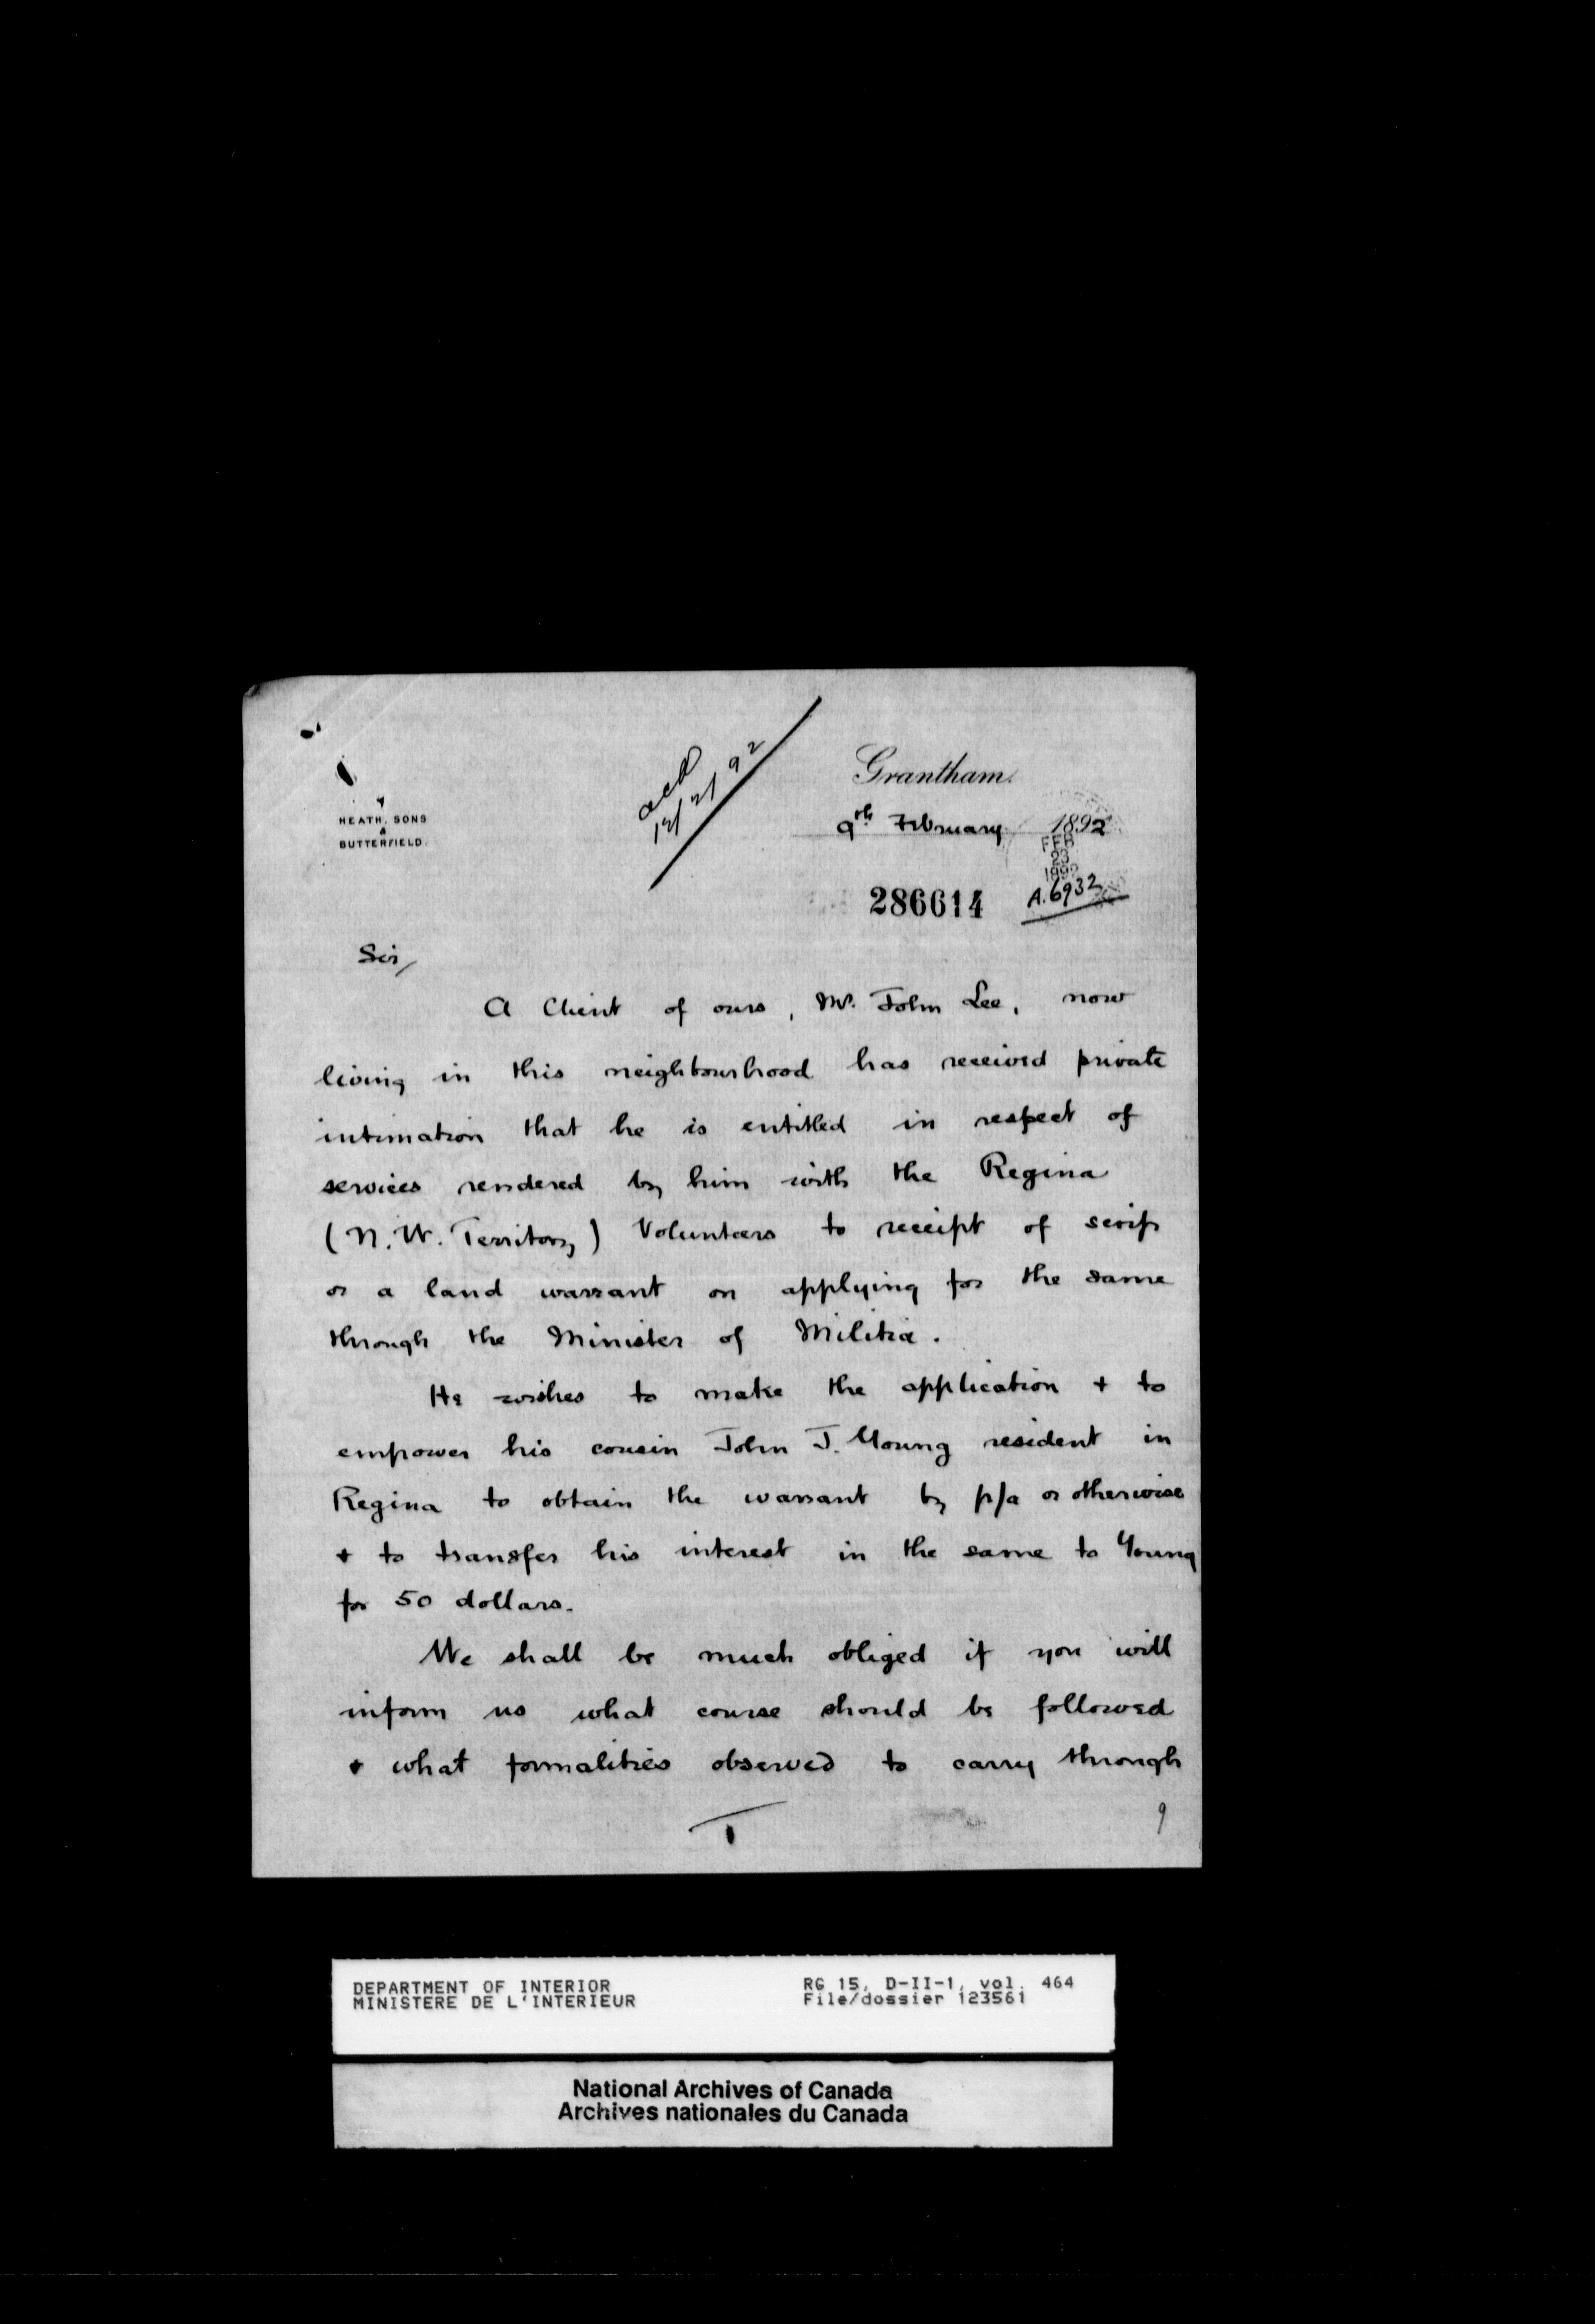 HEATH, SONS
&
BUTTERFIELD.
Grantham.
9th February 1892
FEB
23
1892
286614
A.6932
Sir/
A Client of ours, Mr. John Lee, now
living in this neighbourhood has received private
intimation that he is entitled in respect of
services rendered by him with the Regina
(N.W. Territory) Volunteers to receipt of scrip
or a land warrant on applying for the same
through the Minister of Militia.
He wishes to make the application + to
empower his cousin John J. Young resident in
Regina to obtain the warrant by p/a or otherwise
+ to transfer his interest in the same to Young
for 50 dollars.
We shall be much obliged if you will
inform us what course should be followed
+ what formalities observed to carry through
9
DEPARTMENT OF INTERIOR
MINISTERE DE L'INTERIEUR
RG 15, D-II-1, vol. 464
File/dossier 123561
National Archives of Canada
Archives nationales du Canada